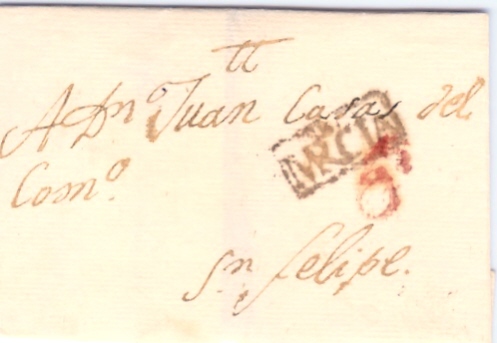 tt
A Dn Juan Casas del
Como.
MVRCIA
6
Sn felipe.